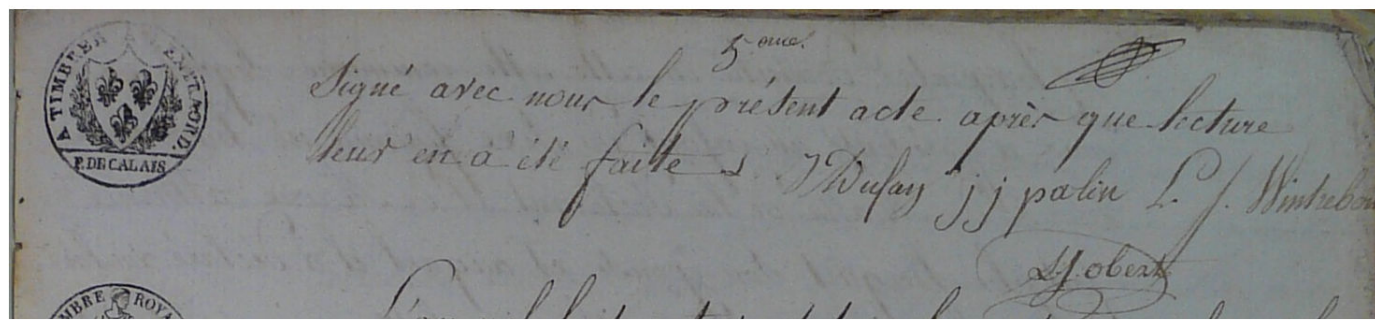 A TIMBRER A L'EXTRAORD.
P. DE CALAIS
5 eme.
Signé avec nous le présent acte après que lecture
leur en à été faite
Dufay j j palin L. J. Wintrebou
L J obert
TIMBRE ROYA